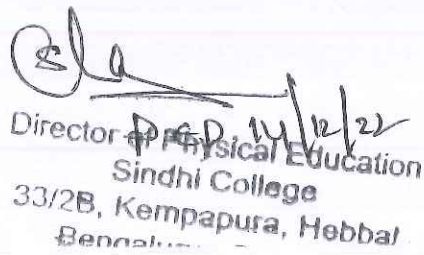 14/12/22
Director of Physical Education
Sindhi College
33/2B, Kempapura, Hebbal